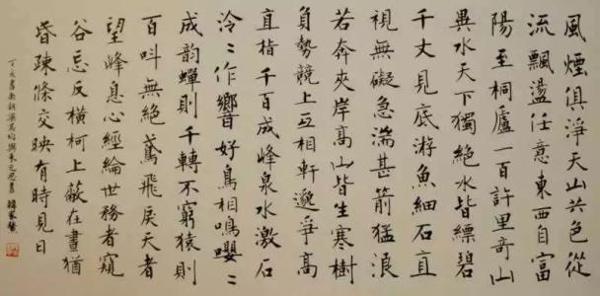 風煙俱淨天山共色從
流飄盪任意東西自富
陽至桐廬一百許里奇山
異水天下獨絕水皆縹碧
千丈見底游魚細石直
視無礙急湍甚箭猛浪
若奔夾岸高山皆生寒樹
負勢競上互相軒邈爭高
直指千百成峰泉水激石
泠〻作響好鳥相鳴嚶〻
成韵蟬則千轉不窮猿則
百叫無絕鳶飛戾天者
望峰息心經綸世務者窺
谷忘反橫柯上蔽在晝猶
昏疎條交映有時見日
書南朝梁吳均與朱元思書